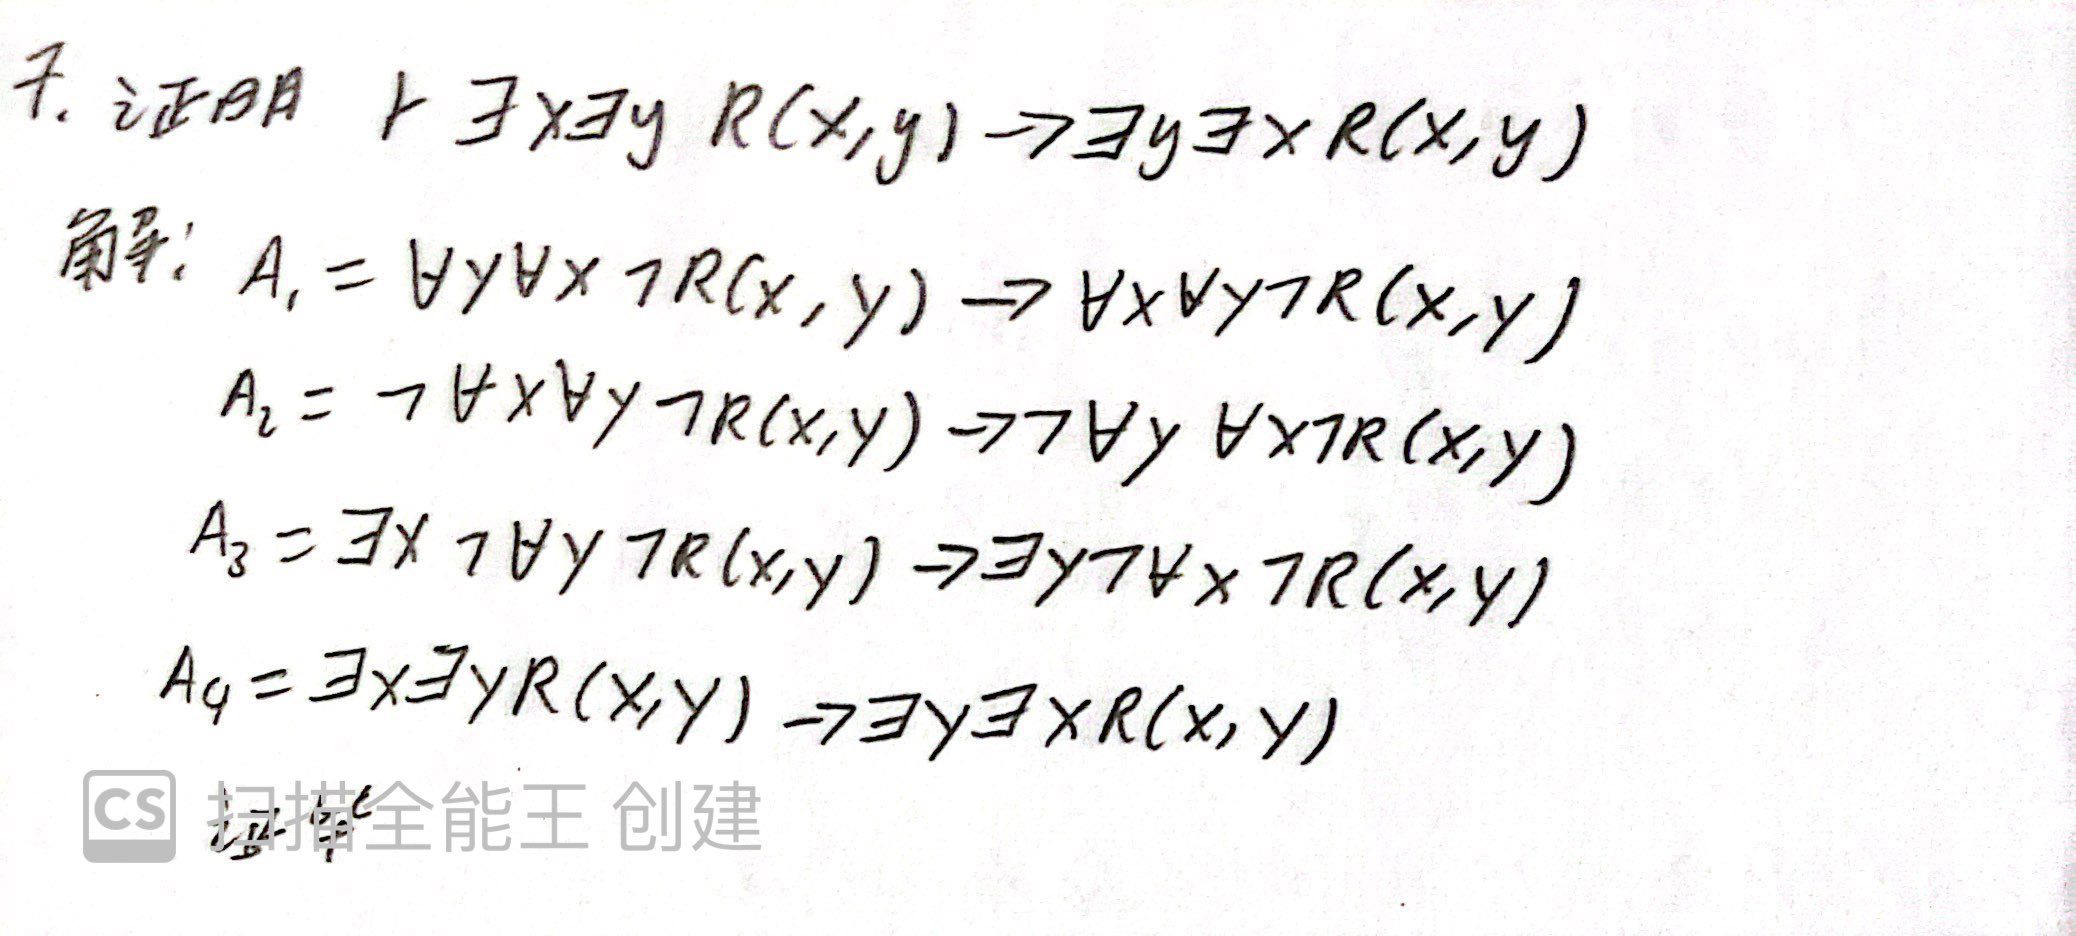 7. 证明 ⊢ ∃x∃y R(x,y) → ∃y∃x R(x,y)
解: A₁ = ∀y∀x ¬R(x,y) → ∀x∀y¬R(x,y)
A₂ = ¬∀x∀y¬R(x,y) → ¬∀y ∀x¬R(x,y)
A₃ = ∃x ¬∀y ¬R(x,y) → ∃y¬∀x ¬R(x,y)
A₄ = ∃x∃yR(x,y) → ∃y∃xR(x,y)
证毕
CS 扫描全能王 创建